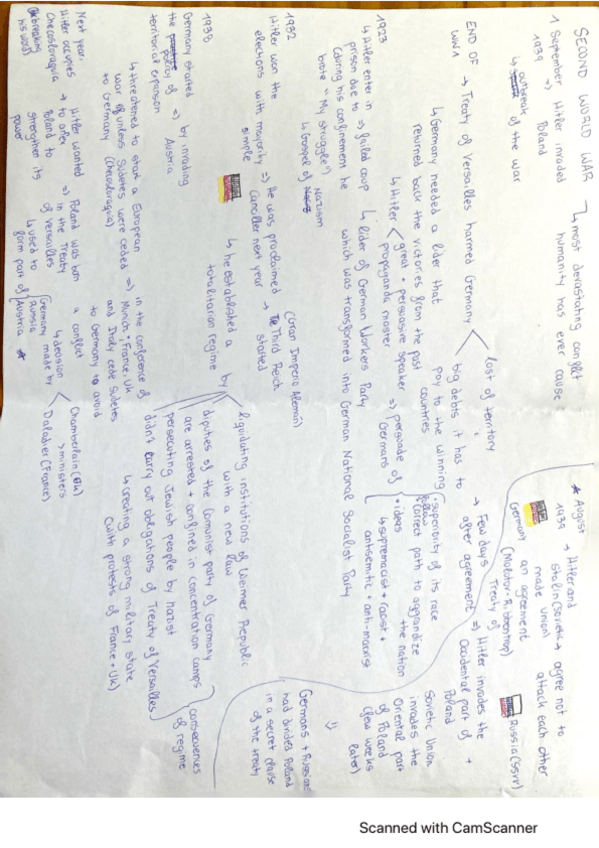 SECOND WORLD WAR ↳ most devastating conflict
humanity has ever cause
1 September ⇒ Hitler invaded
1939 Poland
↳ outbreak of the war
END OF → Treaty of Versalles harmed Germany < lost of territory
WW1 big debts it has to
pay to the winning
countries
↳ Germany needed a lider that
returned back the victories from the past
↳ Hitler < great + persuasive speaker ⇒ persuade of
propaganda master Germans
• superiority of its race
• follow correct path to aggrandize
the nation
• ideas
↳ supremacist + racist +
antisemitic + anti-marxist
1923
↳ Hitler enter in
prison due to ⇒ failed coup ↳ lider of German Workers Party
(during his confinement he which was transformed into German National Socialist Party
wrote "My struggle")
↳ Gospel of Nazism
1932 (Gran Imperio Alemán)
Hitler won the
elections with majority ⇒ He was proclaimed → Third Reich
simple Canciller next year started
↳ he established a by
totalitarian regime
liquidating institutions of Weimer Republic
with a new law
diputies of the Comunist party of Germany
are arrested + confined in concentration camps
persecuting Jewish people by nazist
didn't carry out obligations of Treaty of Versalles
↳ creating a strong military state
(with protests of France + UK)
consecuences
of regime
1938
Germany started
the policy of ⇒ by invading
territorial expansion Austria
↳ threatened to start a European
war if unless Sudetes were ceded ⇒ in the conference of
to Germany (Checosloraquia) Munich, France, UK
and Italy cede Sudetes
to Germany to avoid
a conflict
↳ decision
made by < Chamberlain (UK)
> ministers
Daladier (France)
Next year,
Hitler occupies Hitler wanted Poland was born
Checosloraquia → to anex ⇒ in the Treaty
(breaking Poland to of Versalles
his word) strengthen its ↳ used to
power form part of
Germany
Russia
Austria *
* August
1939 → Hitler and
Stalin (Soviet → agree not to
made union) attack each other
an agreement
Germany Russia (SSRR)
Treaty of
(Molotov - Ribbentrop)
→ Few days
after agreement ⇒ Hitler invades the
Occidental part of +
Poland
Sovietic Union
invades the
Oriental part
of Poland
(few weeks
later)
⇓
Germans + Russians
had divided Poland
in a secret clause
of the treaty
Scanned with CamScanner